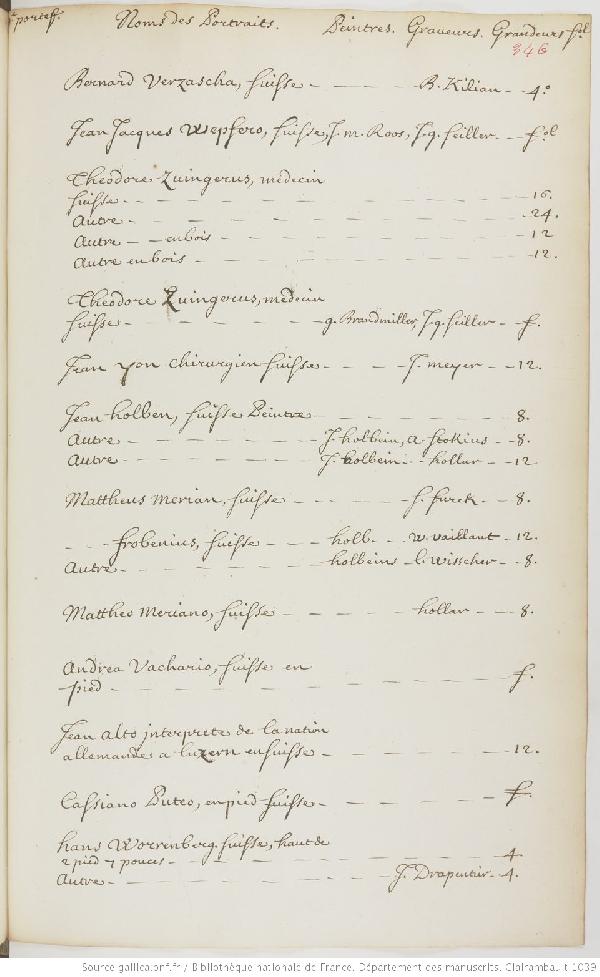 portef. Noms des Portraits. Peintres. Graveurs. Grandeurs fol
346
Bernard Verzascha, suisse - - - B. Kilian - - 4.º
Jean Jacques Wepfero, suisse, J. m. Roos, J. g. seiller. - - fol.
Theodore Zuingerus, medecin
suisse - - - 16.
Autre - - - 24.
Autre - - en bois - - - 12
Autre en bois - - - 12.
Theodore Zuingerus, medecin
suisse - - - g. Brandmiller, J. g. seiller - - f.
Jean von chirurgien suisse - - - J. meyer - - 12.
Jean holben, suisse Peintre - - - 8.
Autre - - - J. holbein, a stokius - - 8.
Autre - - - J. holbein - hollar - - 12
Mattheus merian, suisse - - - s. furck - 8.
- - - frobenius, suisse - - - holb. - - w. vaillant - 12.
Autre - - - holbeins - l. wisscher - 8.
Mattheo Meriano, suisse - - - hollar - - - 8.
Andrea Vachario, suisse en
pied - - - f.
Jean alto interprete de la nation
allemande a luzern en suisse - - - 12.
Cassiano Puteo, en pied suisse - - - f
hans Worrenberg, suisse, haut de
2 pied 7 pouces - - - 4
Autre - - - 4.
Source gallica.bnf.fr / Bibliothèque nationale de France. Département des manuscrits. Clairambault 1039